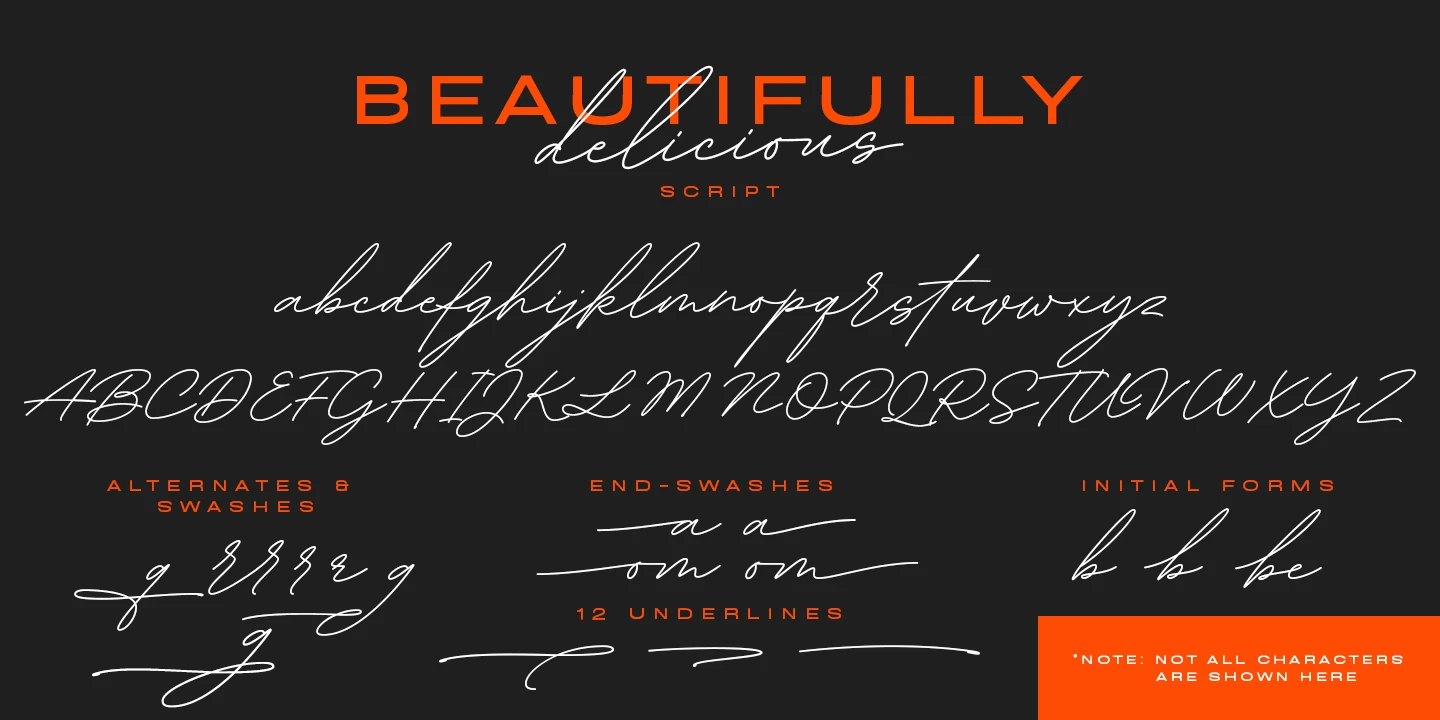 BEAUTIFULLY
delicious
SCRIPT
abcdefghijklmnopqrstuvwxyz
ABCDEFGHIJKLMNOPQRSTUVWXYZ
ALTERNATES &
SWASHES
g r r r r g
g
END-SWASHES
a a
om om
12 UNDERLINES
INITIAL FORMS
b b be
*NOTE: NOT ALL CHARACTERS
ARE SHOWN HERE